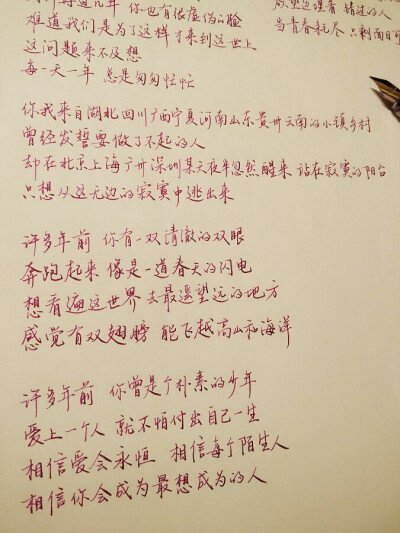 再过几年 你也有张虚伪的脸
难道我们是为了这样才来到这世上
这问题来不及想
每一天一年 总是匆匆忙忙
埋着 错过的人
当青春耗尽 只剩面目可
你我来自湖北四川广西宁夏河南山东贵州云南的小镇乡村
曾经发誓要做了不起的人
却在北京上海广州深圳某天夜半忽然醒来 站在寂寞的阳台
只想从这无边的寂寞中逃出来
许多年前 你有一双清澈的双眼
奔跑起来 像是一道春天的闪电
想看遍这世界 去最遥望远的地方
感觉有双翅膀 能飞越高山和海洋
许多年前 你曾是个朴素的少年
爱上一个人 就不怕付出自己一生
相信爱会永恒 相信每个陌生人
相信你会成为最想成为的人